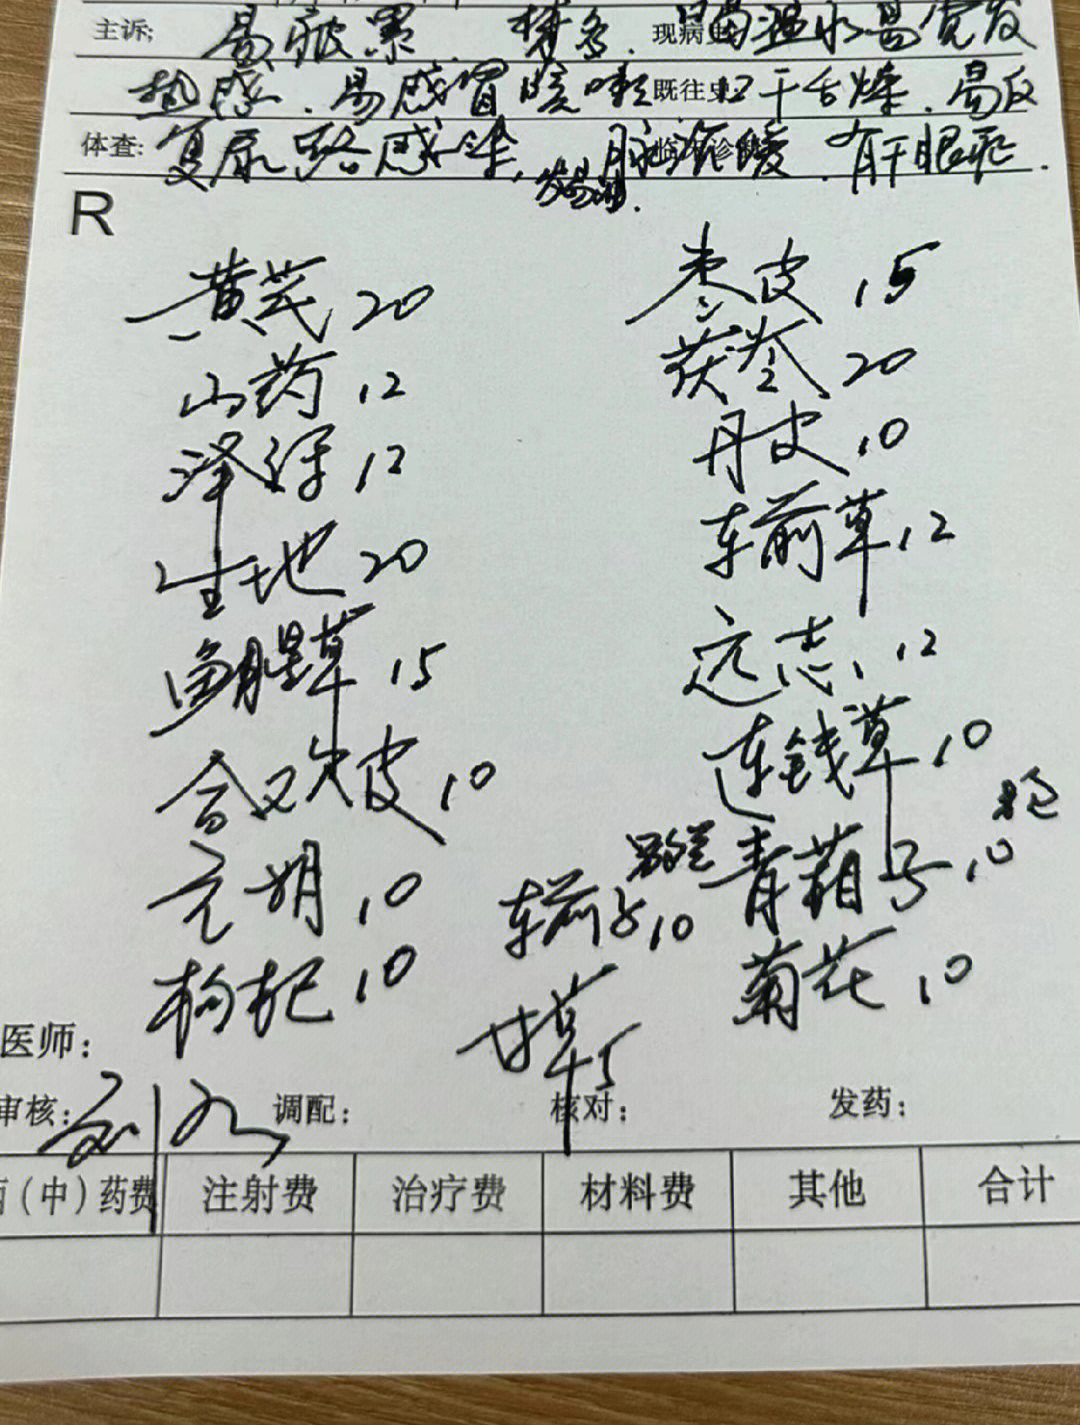 主诉: 易疲累. 梦多. 现病史 喝温水易觉发
热感. 易感冒 咳嗽 既往史 口干舌燥. 易反
体查: 复尿路感染, 脉濡缓. 有干眼症.
R
黄芪 20 枣皮 15
山药 12 茯苓 20
泽泻 12 丹皮 10
生地 20 车前草 12
鱼腥草 15 远志 12
合欢皮 10 连钱草 10
元胡 10 车前子 10 青葙子 10
枸杞 10 甘草 5 菊花 10
医师:
审核: 调配: 核对: 发药:
(中)药费 注射费 治疗费 材料费 其他 合计